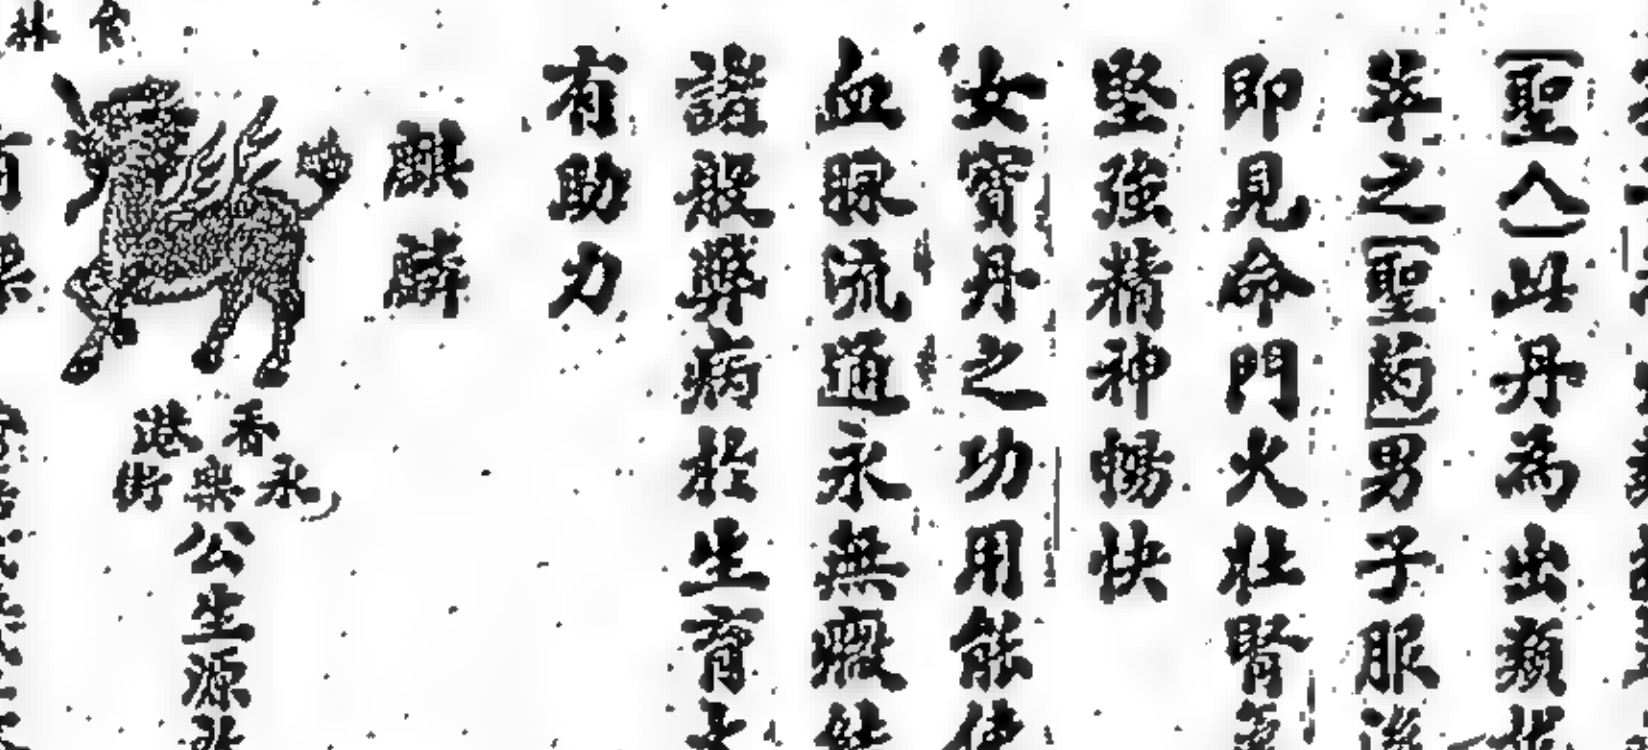 ﹁聖人﹂此丹為出類
萃之﹁聖药﹂男子服後
即見命門火壯腎氣
堅強精神暢快
女寶丹之功用能使
血脈流通永無癥結
諸般弊病於生育大
有助力
麒麟
香港
永樂街
公生源